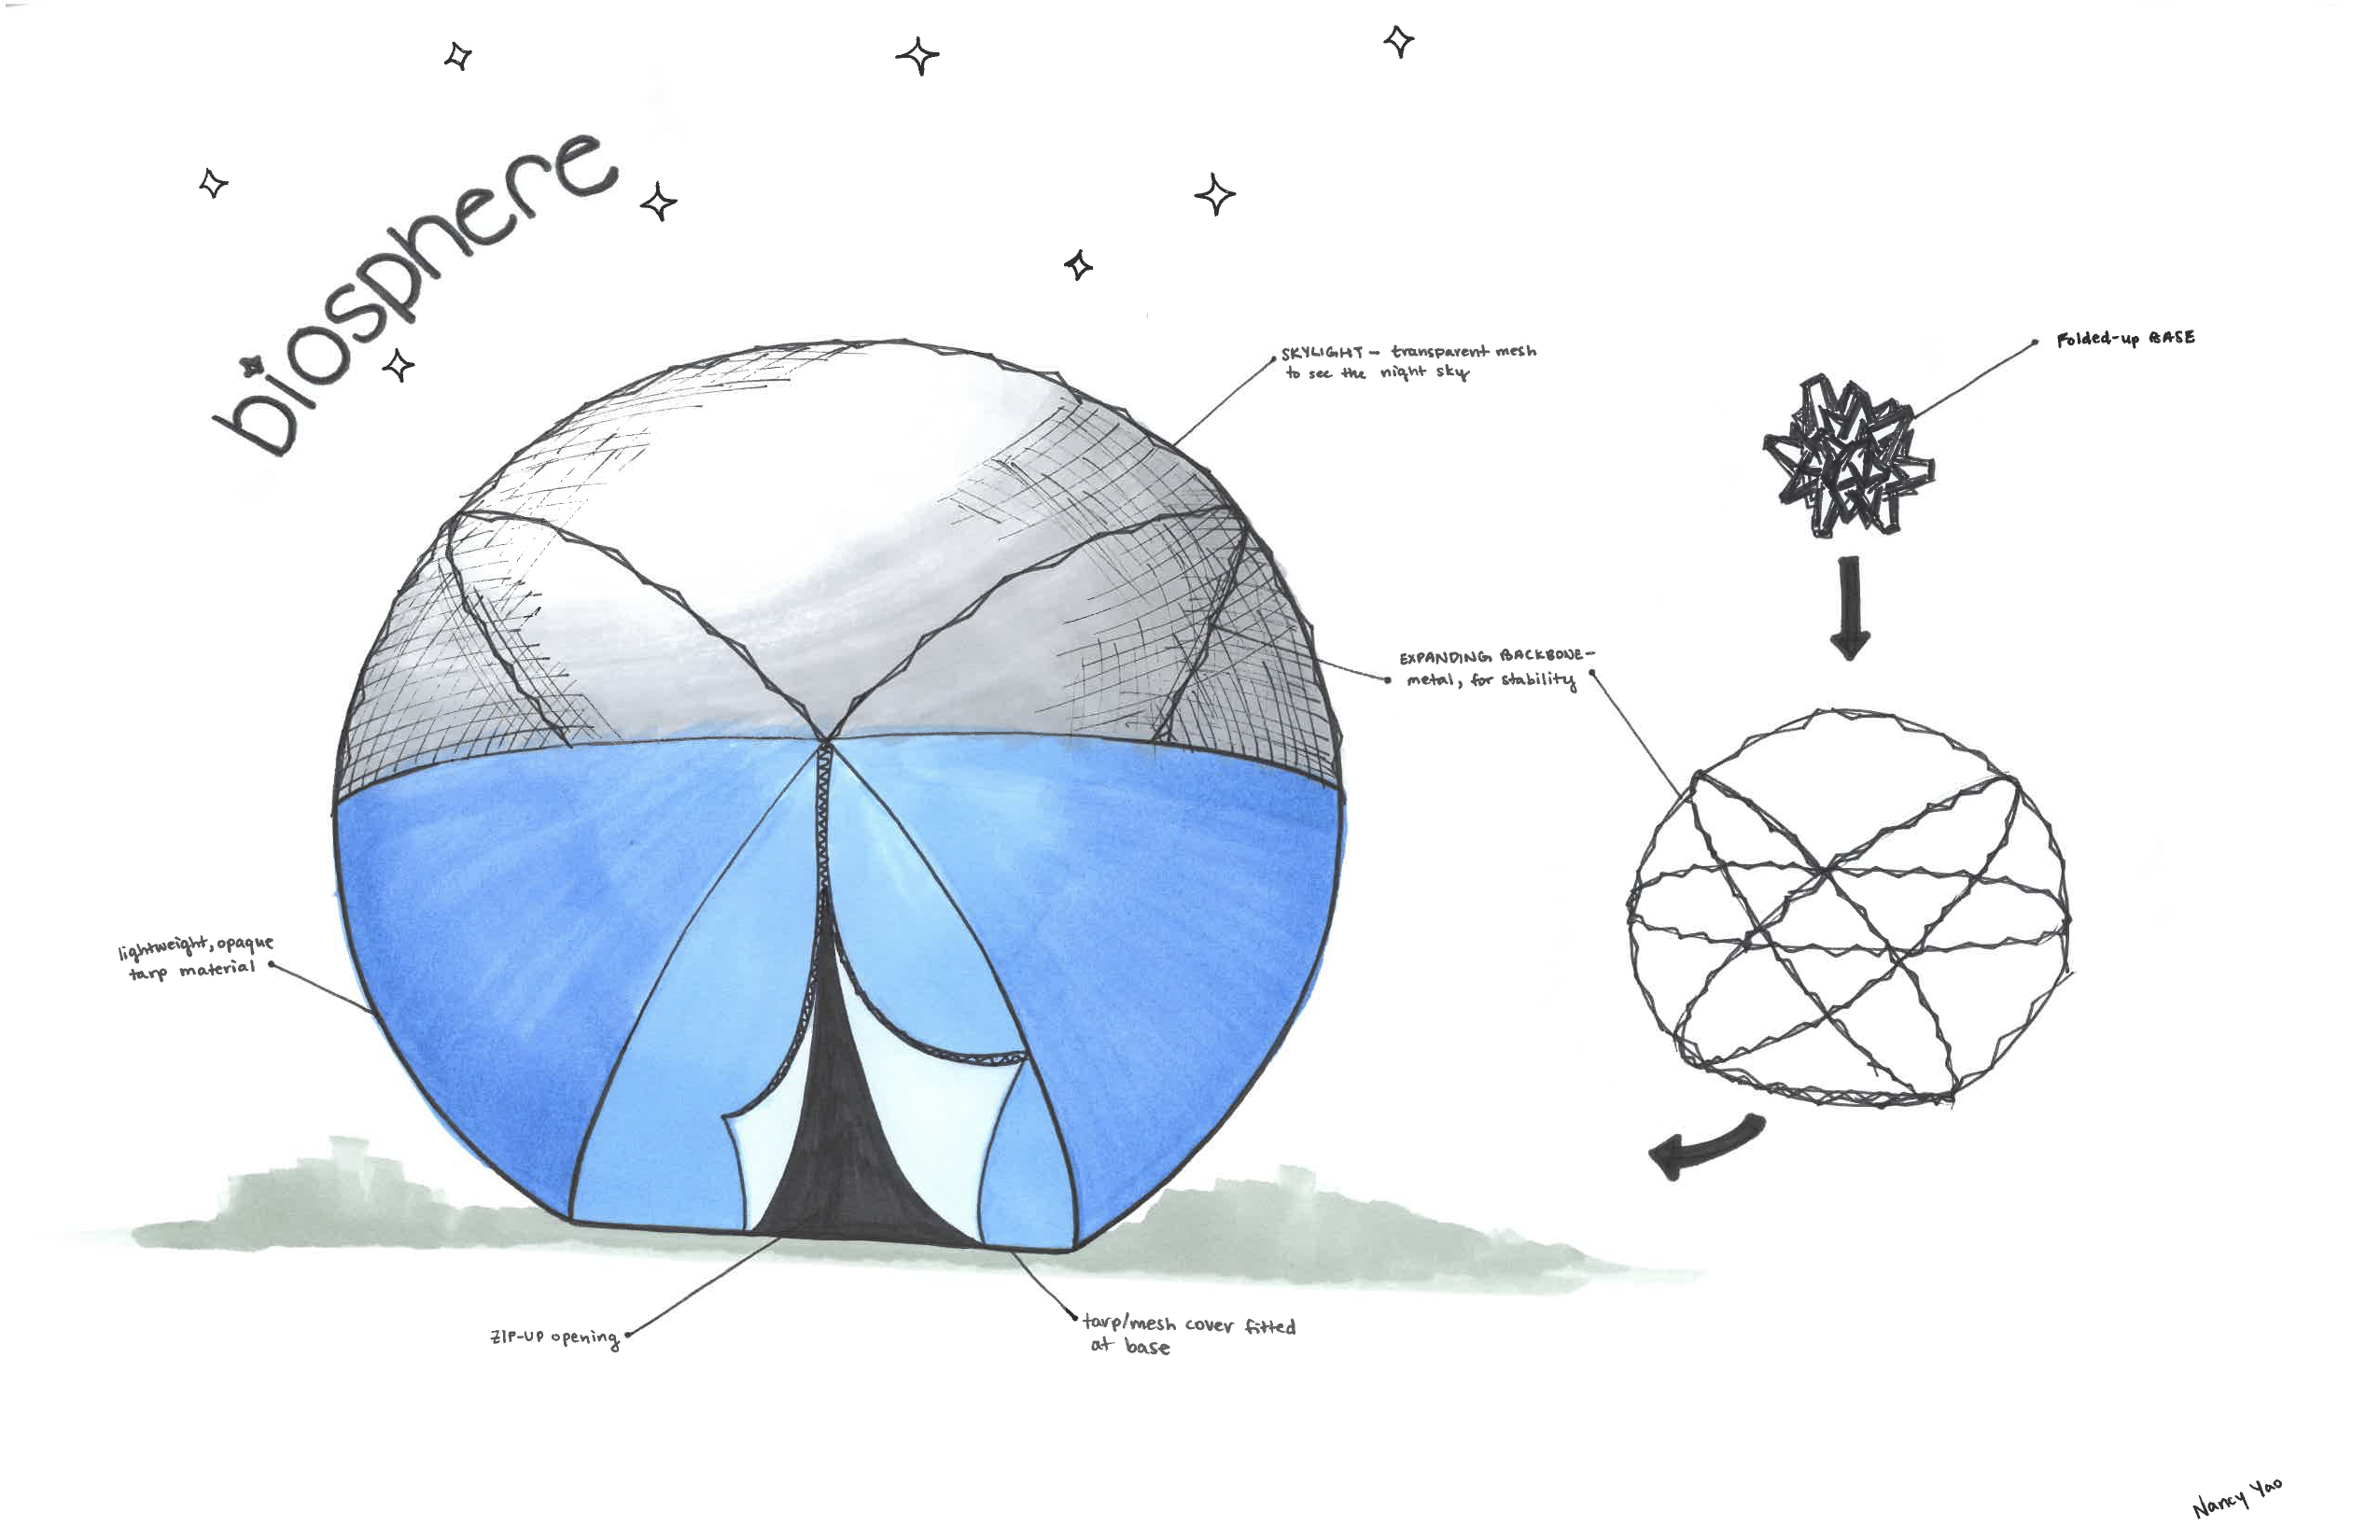 biosphere
SKYLIGHT - transparent mesh
to see the night sky
Folded-up BASE
EXPANDING BACKBONE-
metal, for stability
lightweight, opaque
tarp material
ZIP-UP opening
tarp/mesh cover fitted
at base
Nancy Yao